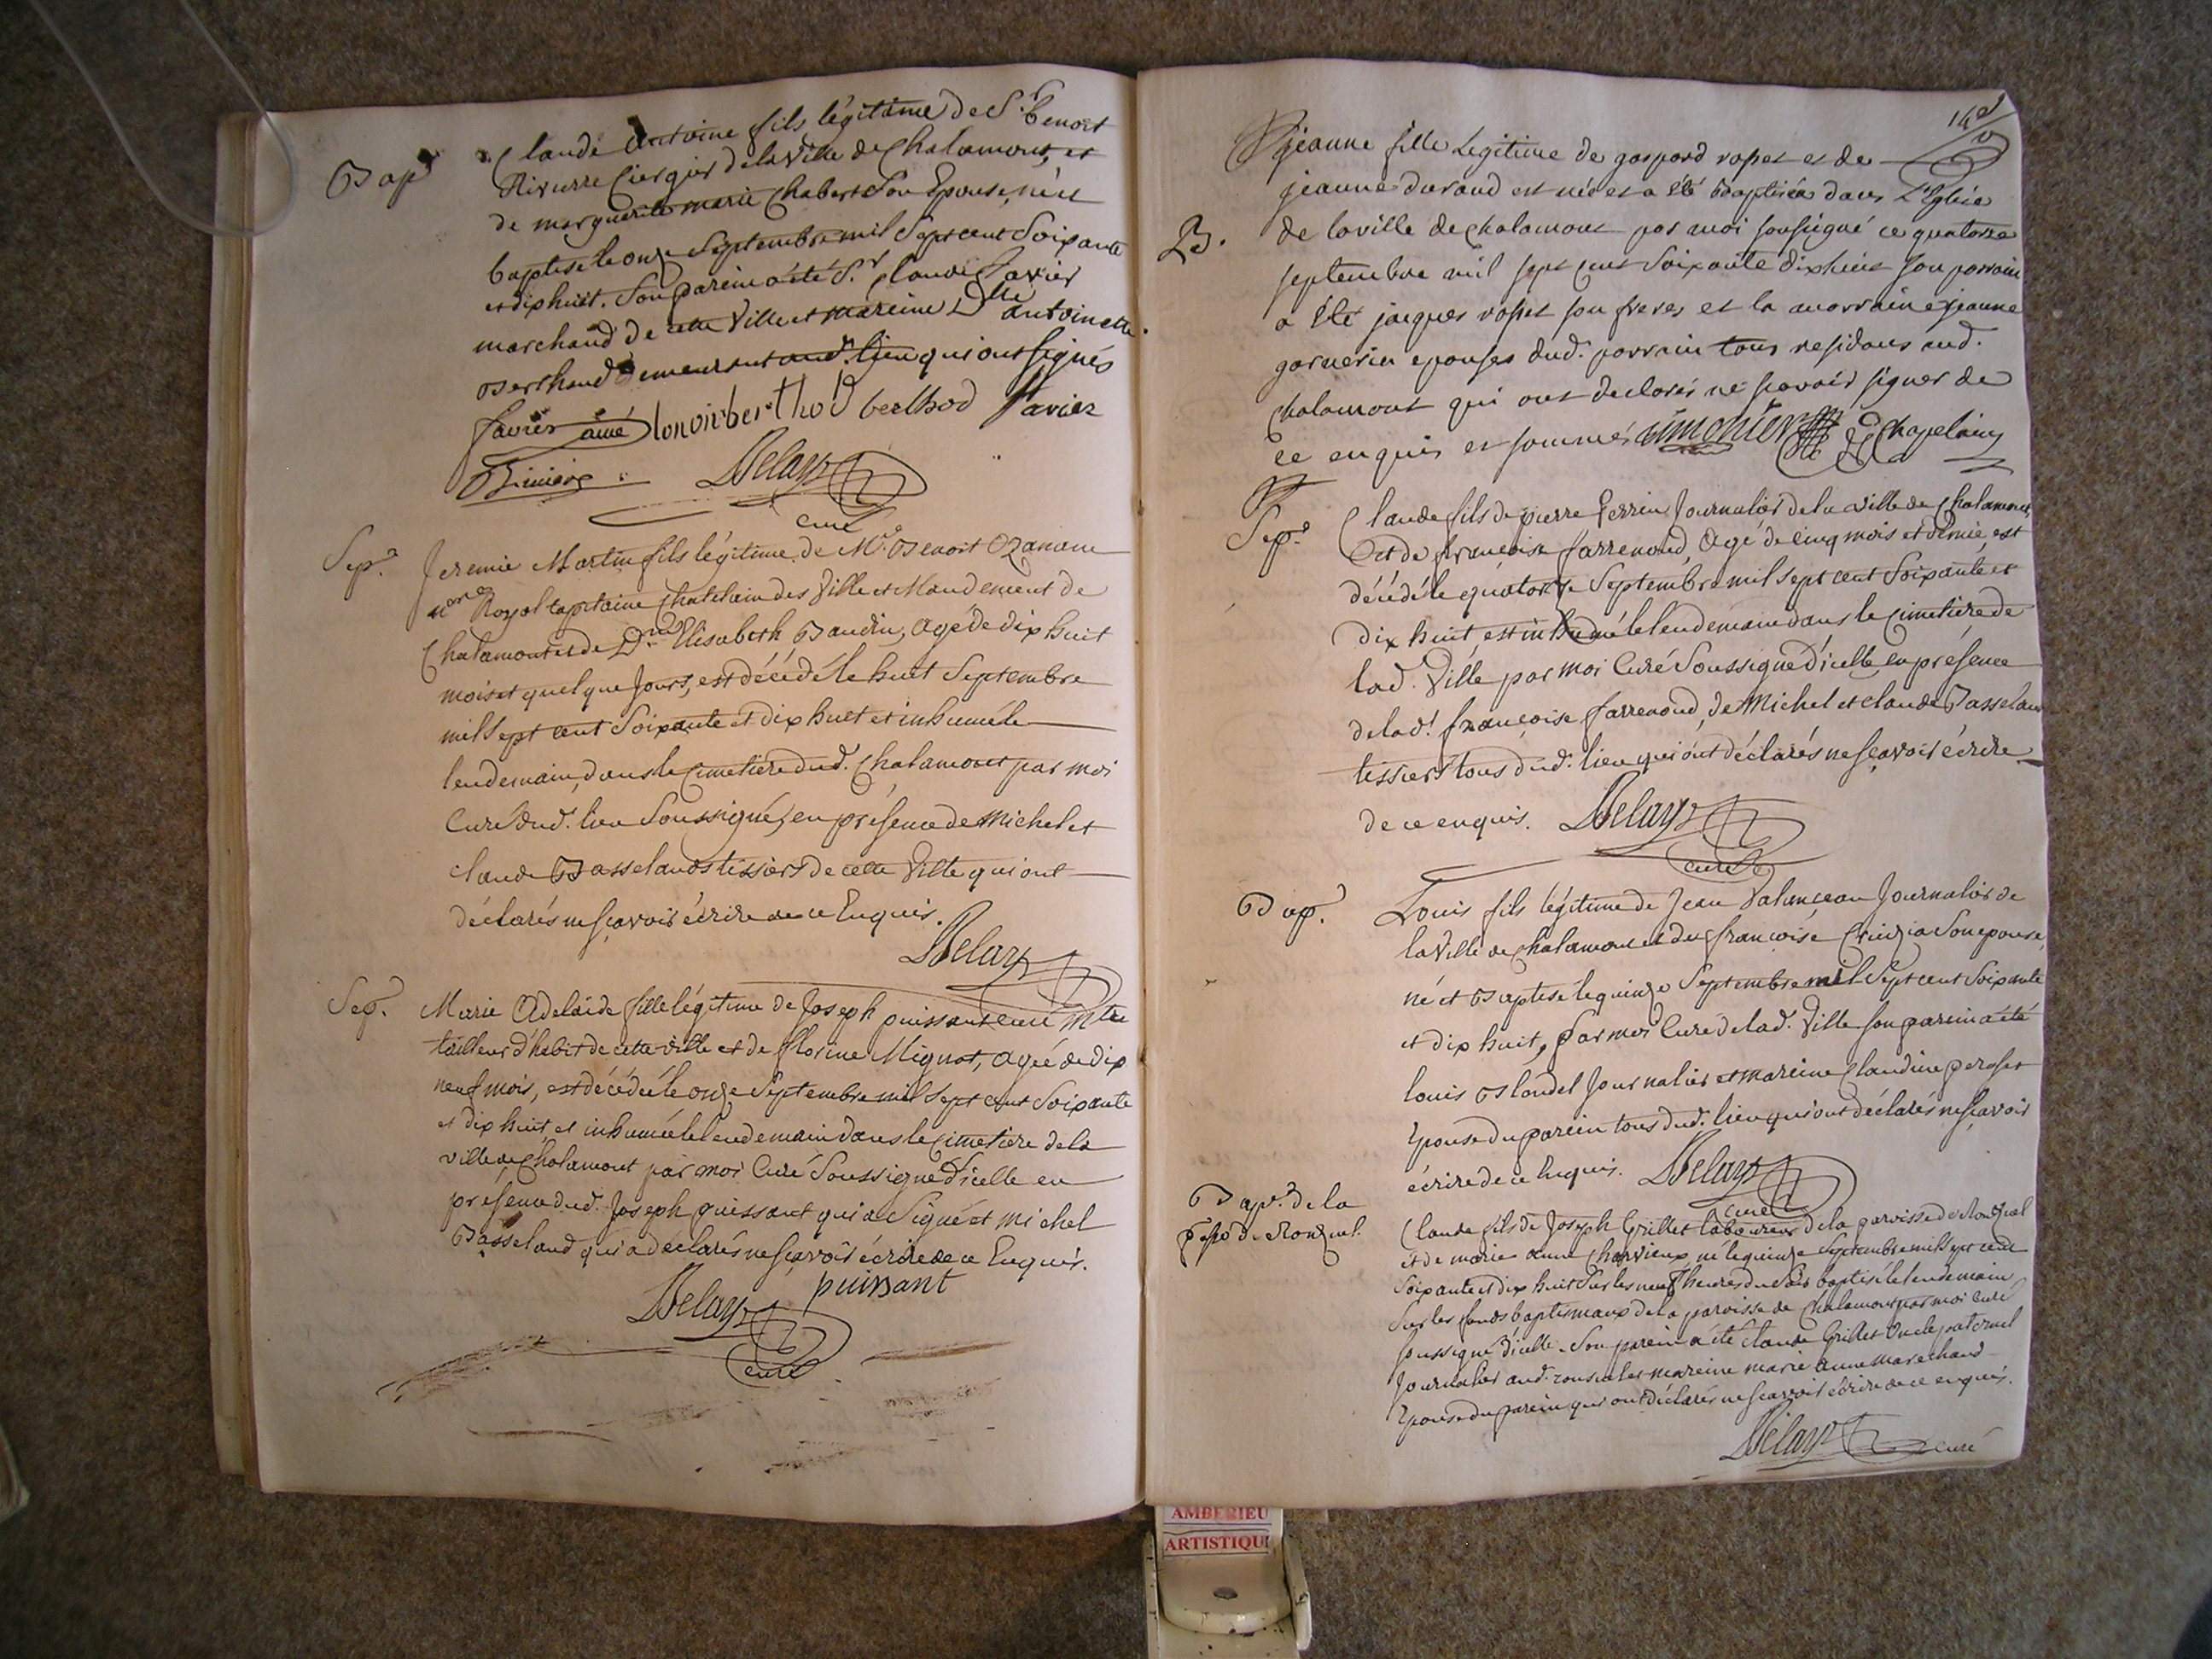 Bap.
Claude Antoine fils légitime de Sr. Benoit
Cirgier de la Ville de Chalamont, et
de marguerite marie Chabert Son Epouse, né et
baptisé le onze Septembre mil Sept cent Soixante
et dix huit. Son parein a été Sr. Claude Favier
marchand de cette Ville et mareine Dlle antoinette
Berthaud demeurant aud. lieu qui ont signés
favier ainé berthod berthod favier
Delay
curé
Sep.
Jeremie Martin fils légitime de Me. Benoit Ozanam
nore Royal Capitaine Chatelain des Ville et Mandement de
Chalamont et de Dme Elisabeth Baudin, agé de dix huit
mois et quelque Jours, est décédé le huit Septembre
mil Sept cent Soixante et dix huit et inhumé le
lendemain, dans le Cimetière dud. Chalamont par moi
Curé dud. lieu Soussigné, en présence de Michel et
claude Basselands tissiers de cette Ville qui ont
déclarés ne sçavoir écrire de ce Enquis.
Delay
Sep.
Marie Adelaide fille légitime de Joseph puissant mtre
tailleur d'habit de cette ville et de florine Mignot, agée de dix
neuf mois, est décédée le onze Septembre mil Sept cent Soixante
et dix huit, et inhumée le lendemain dans le Cimetiere de la
ville de Chalamont par moi Curé Soussigné d'icelle en
présence dud. Joseph puissant qui a Signé et michel
Basseland qui a déclarés ne Sçavoir écrire de ce Enquis.
puissant
Delay
curé
jeanne fille Legitime de gaspard rapet et de
jeanne durand est née et a été baptisée dans L'Eglise
B.
de la ville de chalamont par moi soussigné ce quatorze
septembre mil sept cent soixante dix huit son parrain
a été jacques rapet son frere et la marraine jeanne
garnerin epouse dud. parrain tous residans aud.
chalamont qui ont declarés ne savoir signer de
ce enquis et sommés simonier Chapelain
Sep.
Claude fils de pierre perrin Journalier de la ville de Chalamont,
et de françoise farrenoud, agé de cinq mois et demie, est
décédé le quatorze Septembre mil sept cent Soixante et
dix huit, est inhumé le lendemain dans le Cimetière de
lad. Ville par moi Curé Soussigné d'icelle en présence
de lad. françoise farrenoud, de Michel et claude Basseland
tissiers tous dud. lieu qui ont déclarés ne sçavoir écrire
de ce enquis. Delay
curé
Bap.
Louis fils légitime de Jean Journalier de
la Ville de Chalamont et de françoise Son epouse,
né et Baptisé le quinze Septembre mil Sept cent Soixante
et dix huit, par moi Curé de lad. Ville son parein a été
louis Blondel Journalier et mareine Claudine peroset
Epouse du parein tous dud. lieu qui ont déclarés ne sçavoir
écrire de ce Enquis. Delay
curé
Bap. de la
Claude fils de Joseph Grillet laboureur de la paroisse de Ronzuel
psse de Ronzuel.
et de marie anne Charvieux, né le quinze Septembre mil sept cent
Soixante et dix huit Sur les neuf heures du Soir baptisé le lendemain
Sur les fonds baptismaux de la paroisse de Chalamont par moi Curé
Soussigné d'icelle. Son parein a été Claude Grillet Oncle paternel
Journalier aud. et mareine marie anne marechand
Epouse du parein qui ont déclarés ne sçavoir écrire de ce enquis.
Delay curé
AMBERIEU
ARTISTIQU